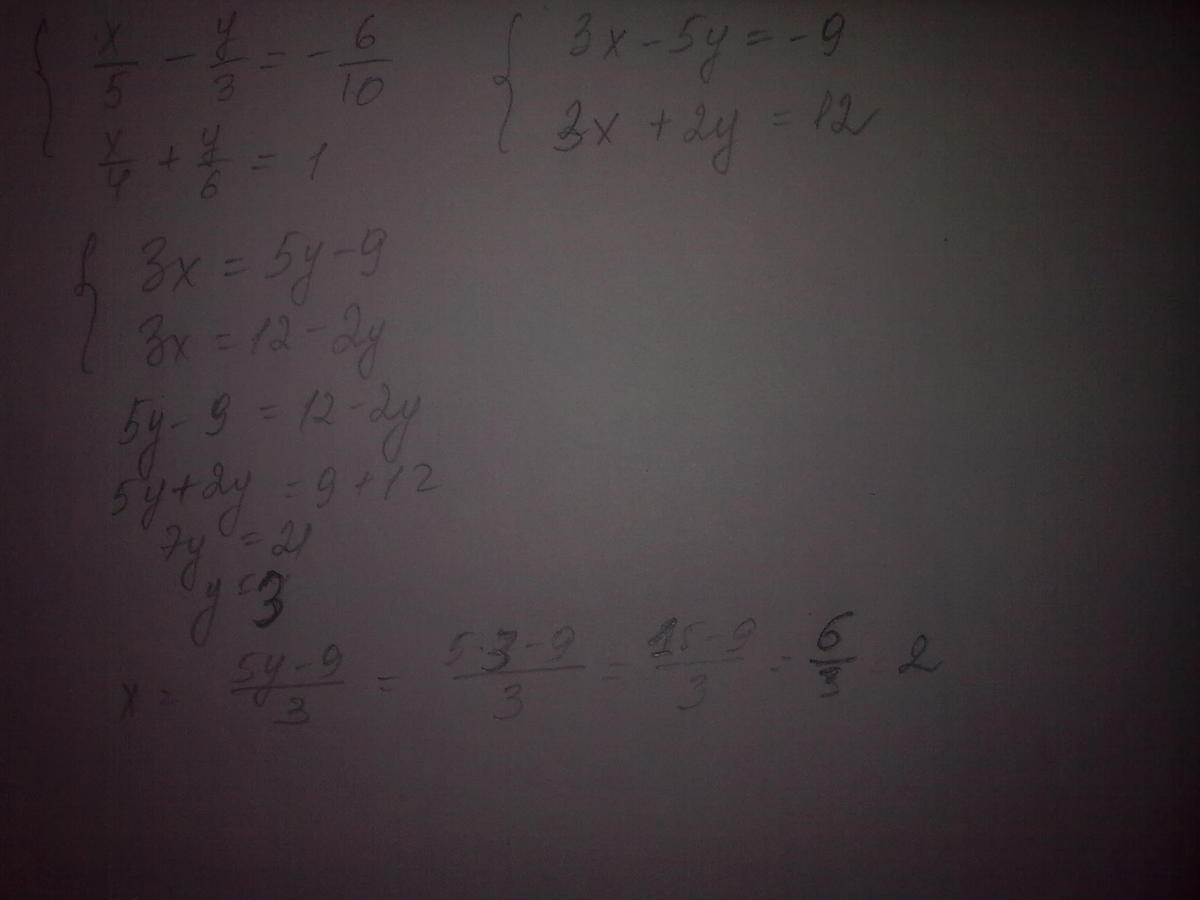 x/5 - y/3 = - 6/10
x/4 + y/6 = 1
3x - 5y = -9
3x + 2y = 12
3x = 5y - 9
3x = 12 - 2y
5y - 9 = 12 - 2y
5y + 2y = 9 + 12
7y = 21
y = 3
x = (5y - 9)/3 = (5·3 - 9)/3 = (15 - 9)/3 = 6/3 2